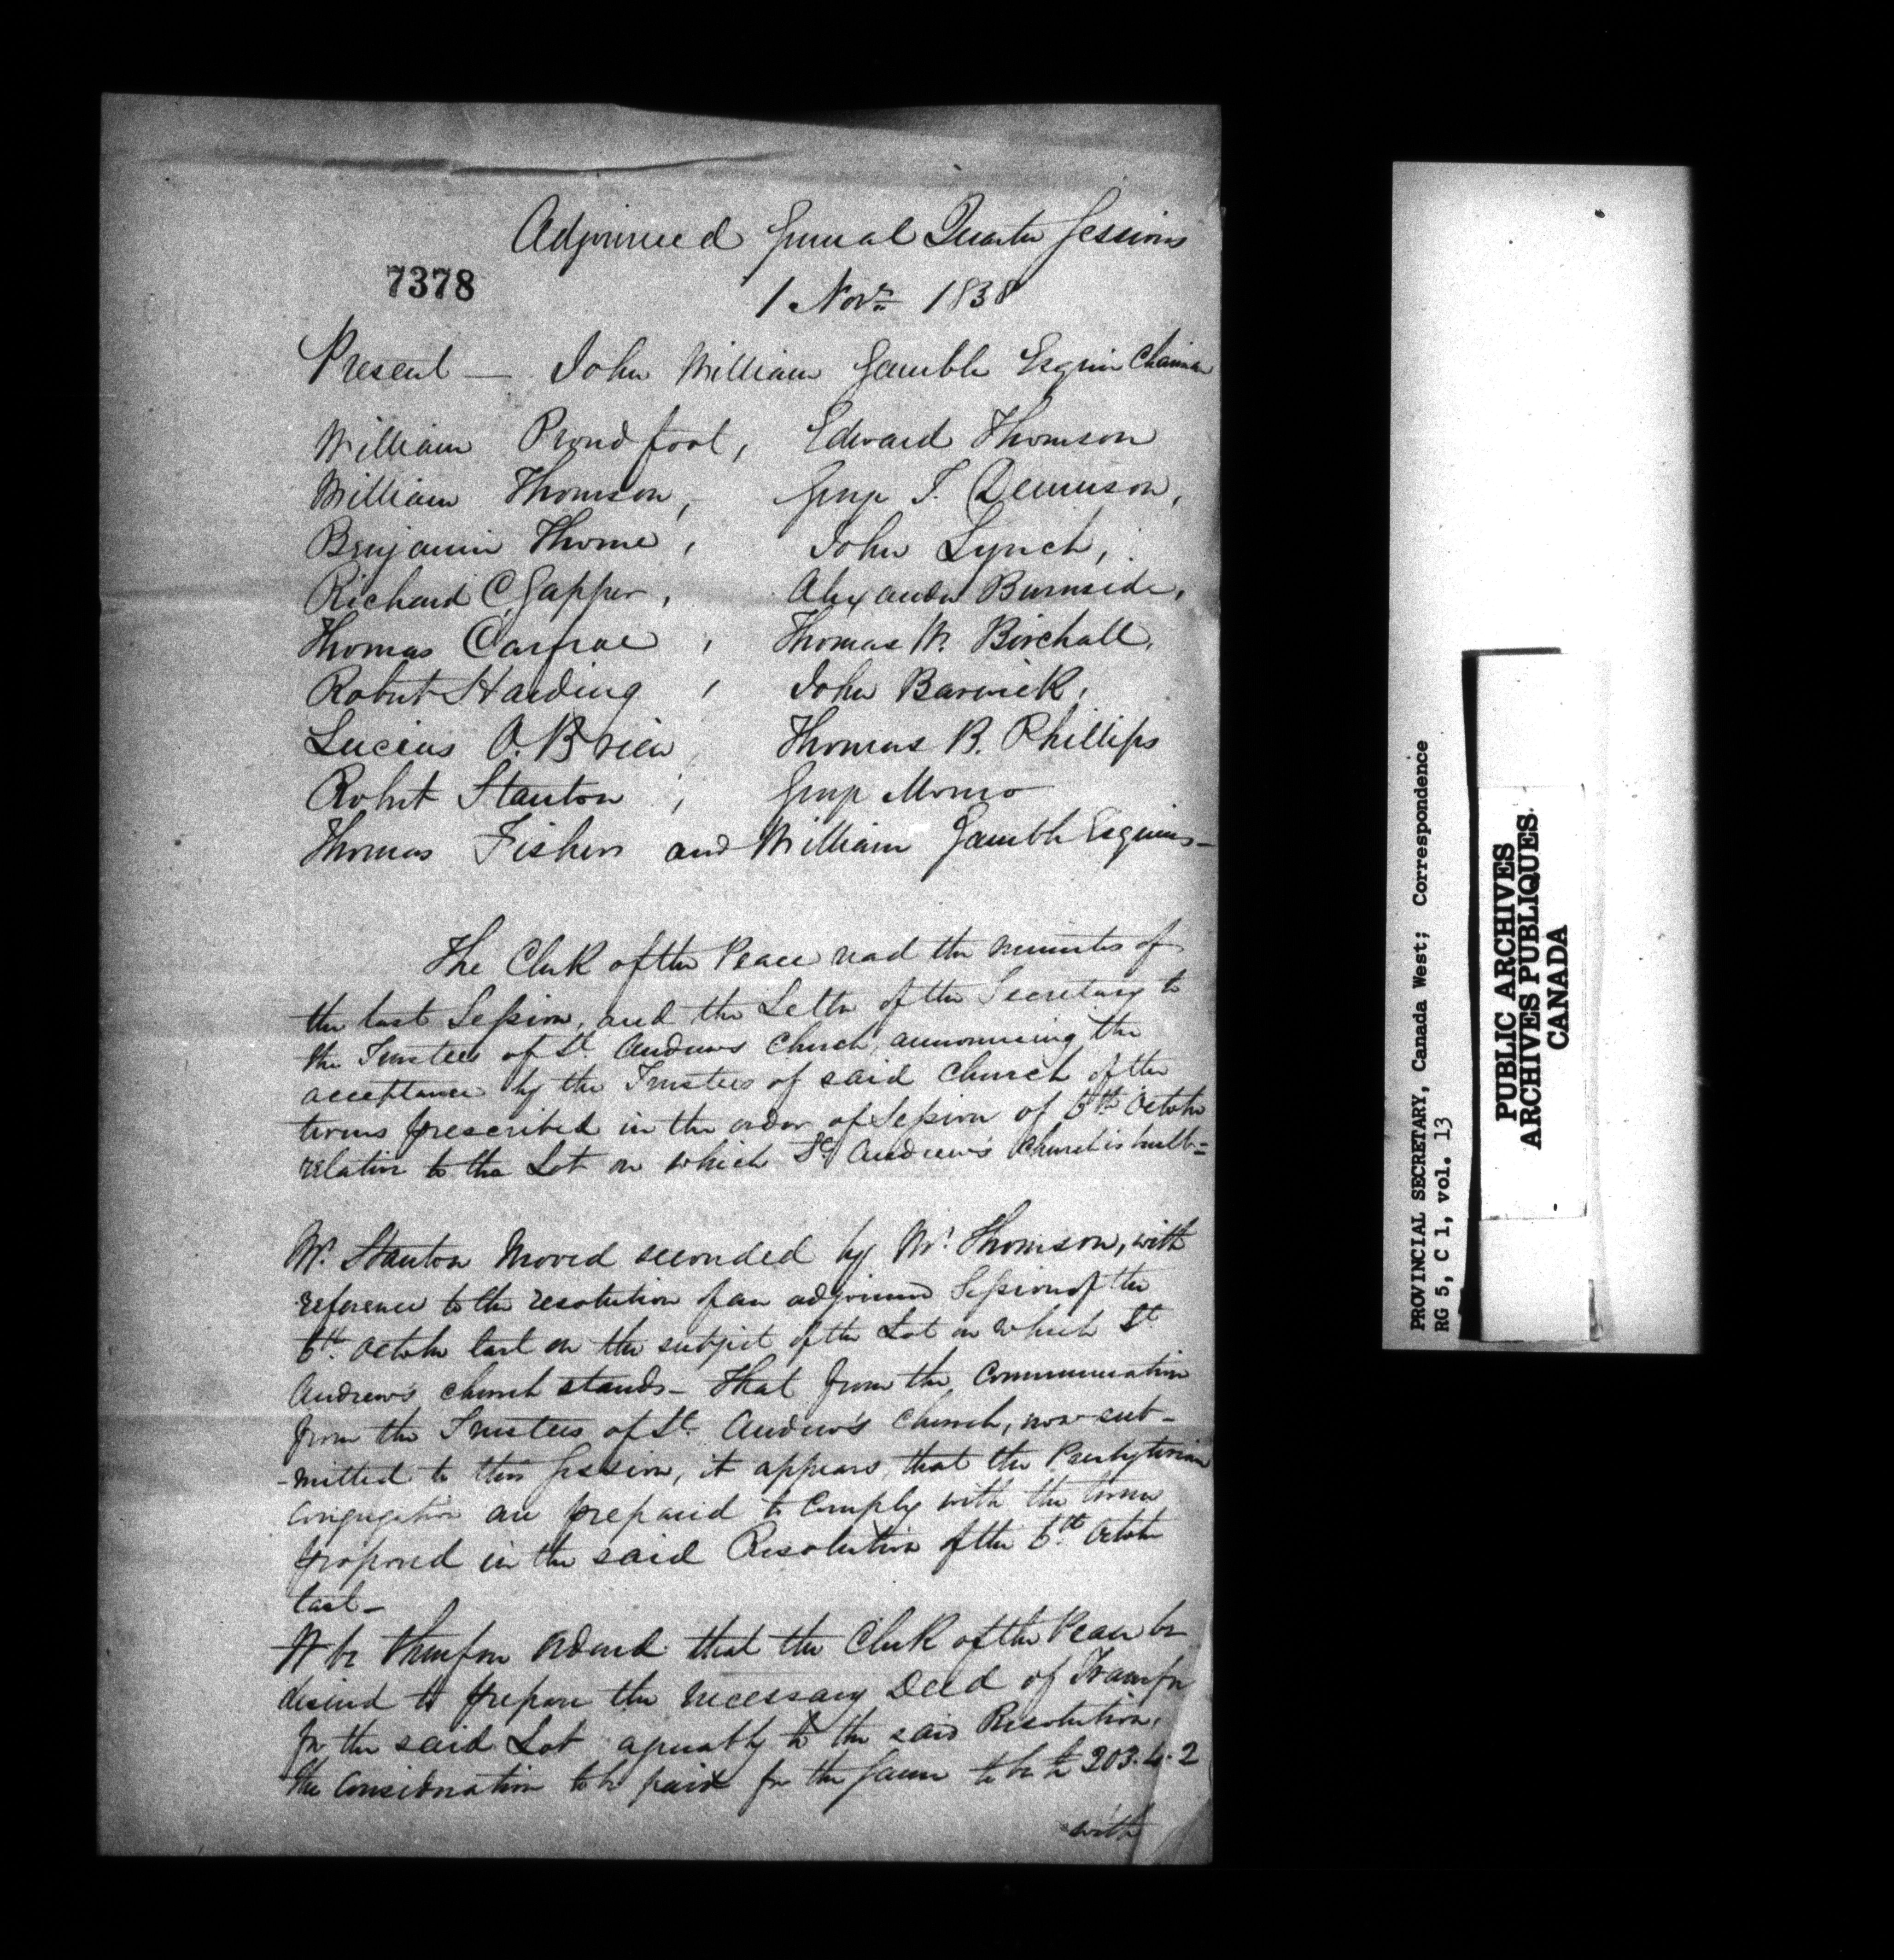 Adjourned General Quarter Sessions
7378
1 Novr. 1838
Present — John William Gamble Esquire Chairman
William Proudfoot, Edward Thomson
William Thomson, George T. Dennison,
Benjamin Thorne, John Lynch,
Richard C. Gapper, Alexander Burnside,
Thomas Carfrae, Thomas W. Birchall,
Robert Harding, John Barwick,
Lucius O. Brien, Thomas B. Phillips
Robert Stanton, George Monro
Thomas Fisher and William Gamble Esquires—
The Clerk of the Peace read the minutes of
the last Session, and the Letter of the Secretary to
the Trustees of St. Andrews Church, announcing the
acceptance by the Trustees of said Church of the
terms prescribed in the order of Session of 6th October
relative to the Lot on which St. Andrew's Church is built=
Mr. Stanton moved seconded by Mr. Thomson, with
reference to the resolution of an adjourned Session of the
6th. October last on the subject of the Lot on which St
Andrew's church stands— That from the Communication
from the Trustees of St. Andrew's Church, now sub-
-mitted to this Session, it appears, that the Presbyterian
Congregation are prepared to comply with the terms
proposed in the said Resolution of the 6th. October
last—
It be therefore ordered that the Clerk of the Peace be
desired to prepare the necessary Deed of Transfer
for the said Lot agreeably to the said Resolution,
the consideration to be paid for the same to be £ 203.4.2
with
PROVINCIAL SECRETARY, Canada West; Correspondence
RG 5, C 1, vol. 13
PUBLIC ARCHIVES
ARCHIVES PUBLIQUES
CANADA